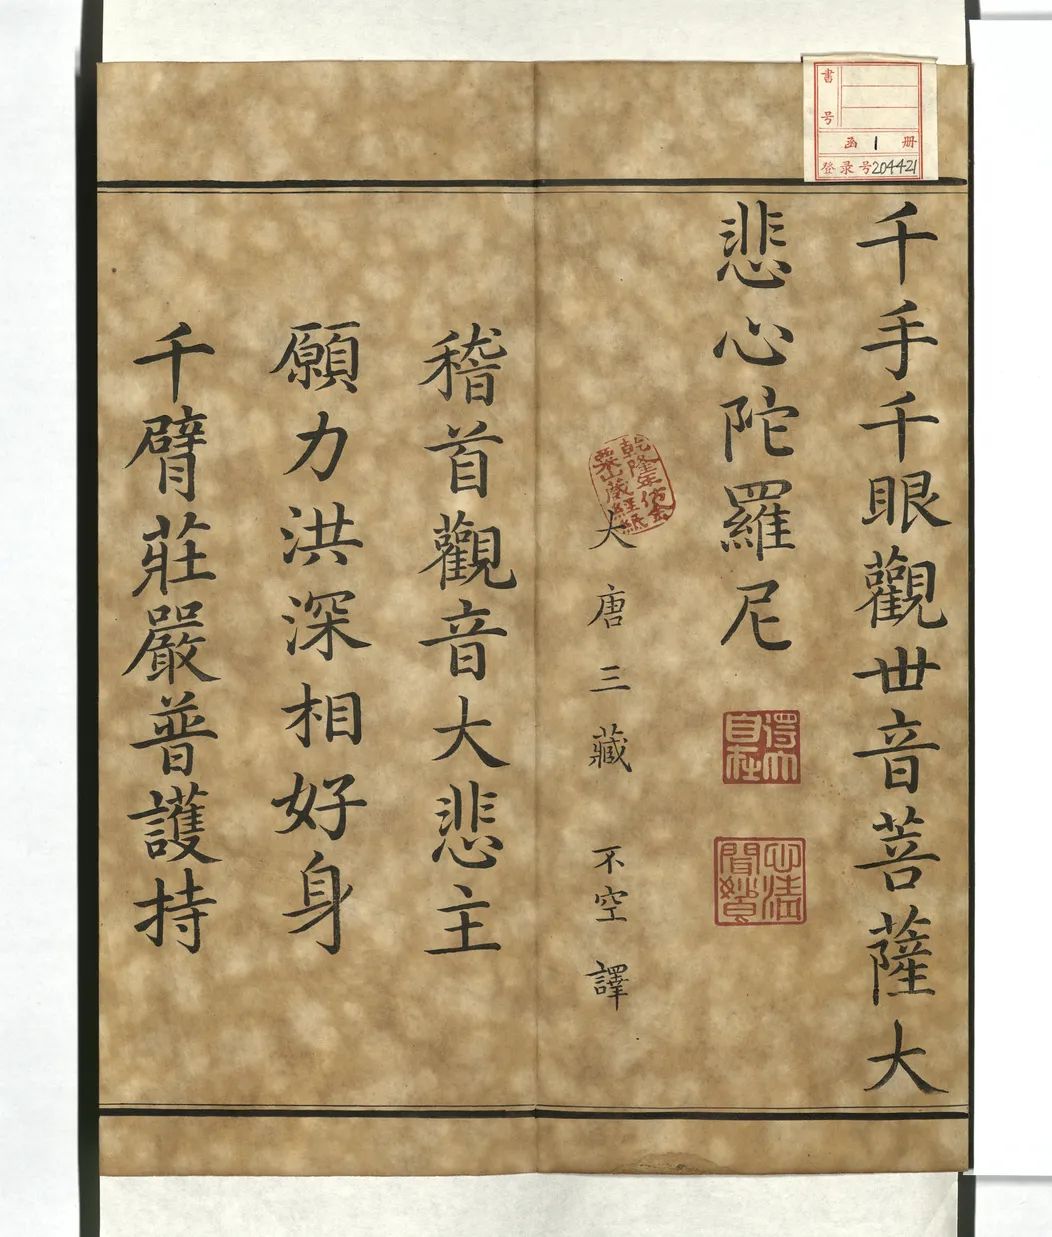 書号
函 1 册
登录号204421
千手千眼觀世音菩薩大
悲心陀羅尼
得大
自在
心清
聞妙
乾隆年仿金
粟山藏經紙
大唐三藏 不空 譯
稽首觀音大悲主
願力洪深相好身
千臂莊嚴普護持